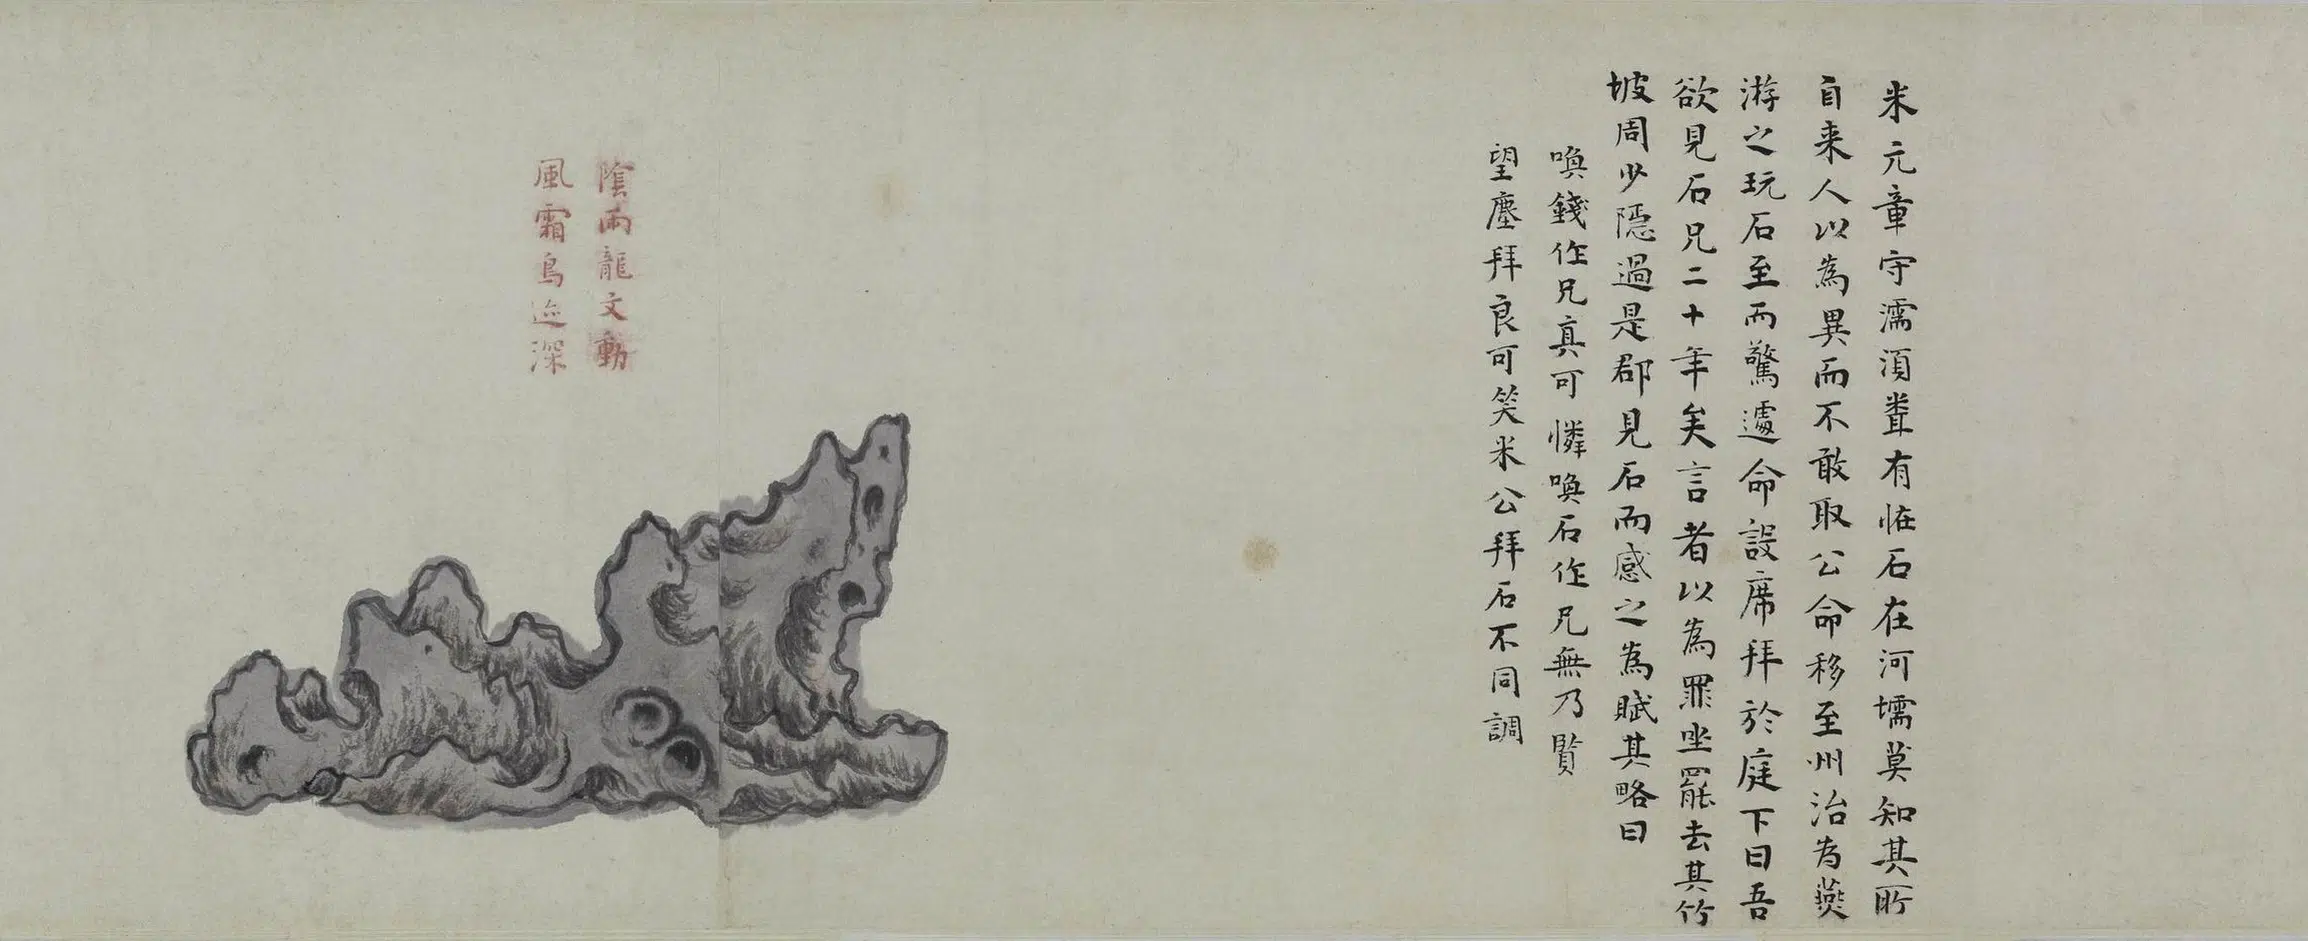 米元章守濡湏耆有恠石在河壖莫知其所
自来人以為異而不敢取公命移至州治為燕
游之玩石至而驚遽命設席拜於庭下曰吾
欲見石兄二十年矣言者以為罪坐罷去其竹
坡周少隠過是郡見石而感之為賦其略曰
喚錢作兄真可憐喚石作兄無乃賢
望塵拜良可笑米公拜石不同調
陰雨龍文動
風霜鳥迹深